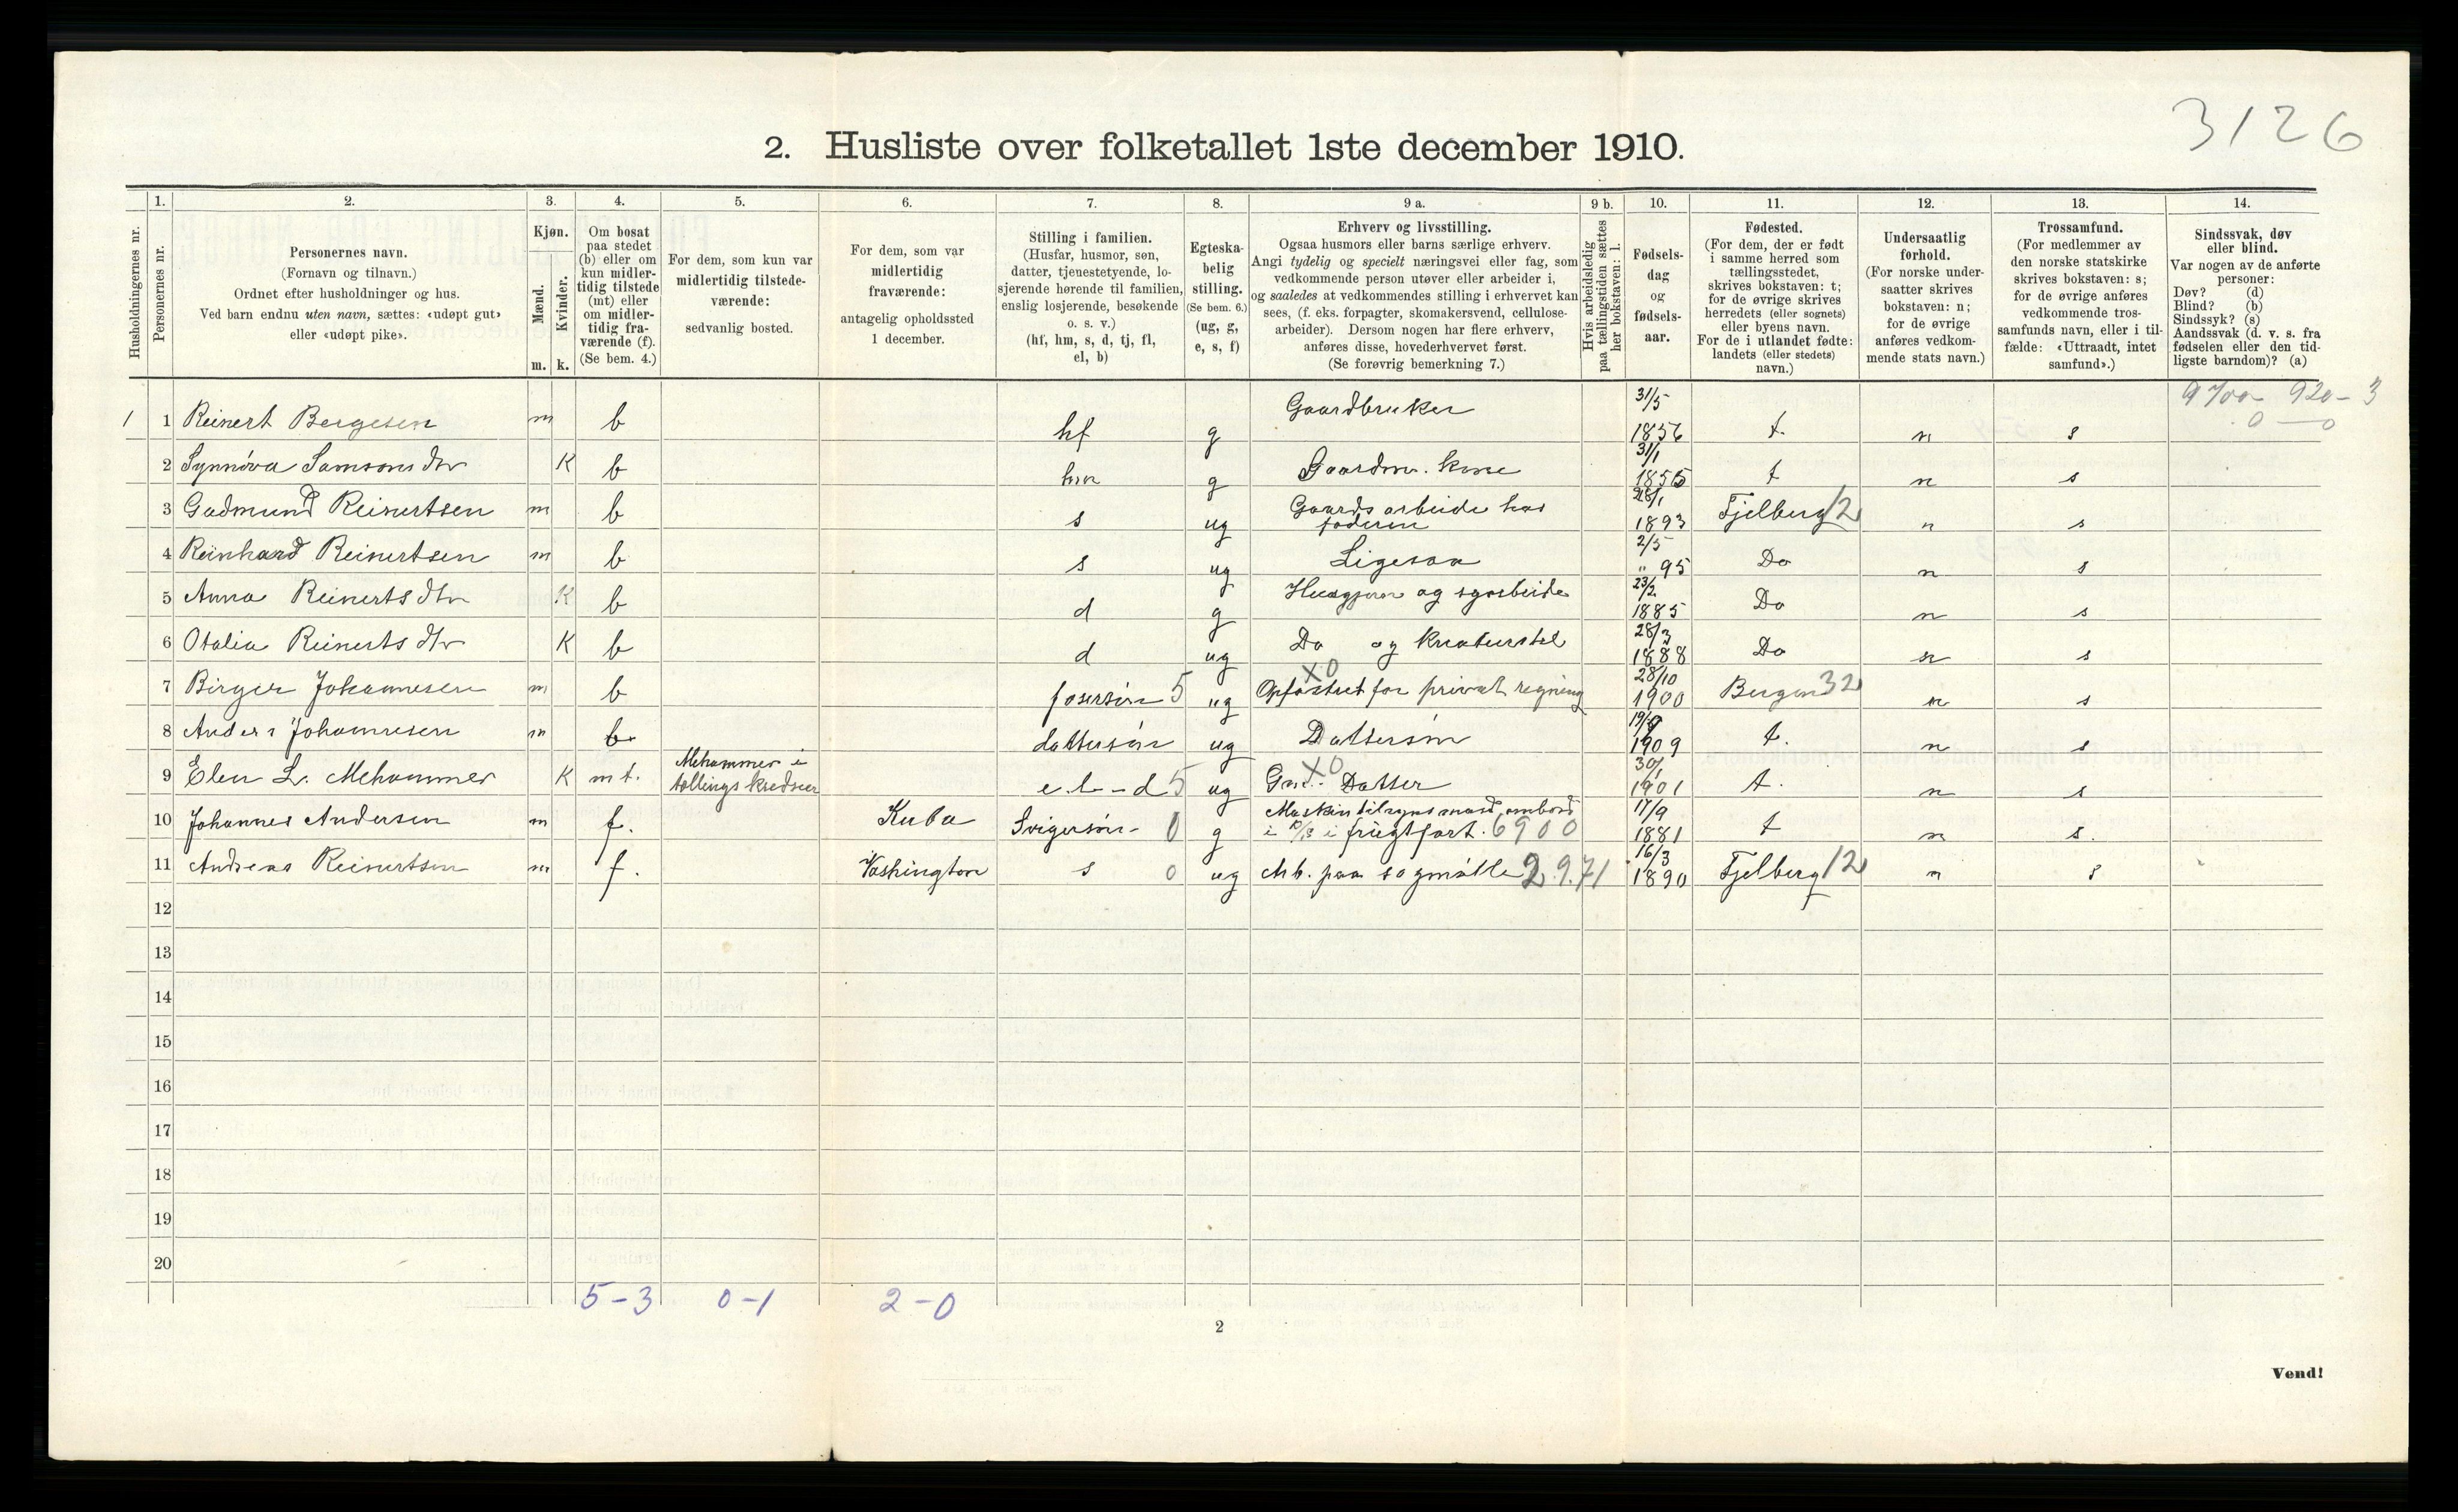 3126
2. Husliste over folketallet 1ste december 1910.
Husholdningernes nr.
1.
Personernes nr.
2.
Personernes navn.
(Fornavn og tilnavn.)
Ordnet efter husholdninger og hus.
Ved barn endnu uten navn, sættes: «udøpt gut»
eller «udøpt pike».
3.
Kjøn.
Mænd.
Kvinder.
m. k.
4.
Om bosat
paa stedet
(b) eller om
kun midler-
tidig tilstede
(mt) eller
om midler-
tidig fra-
værende (f).
(Se bem. 4.)
5.
For dem, som kun var
midlertidig tilstede-
værende:
sedvanlig bosted.
6.
For dem, som var
midlertidig
fraværende:
antagelig opholdssted
1 december.
7.
Stilling i familien.
(Husfar, husmor, søn,
datter, tjenestetyende, lo-
sjerende hørende til familien,
enslig losjerende, besøkende
o. s. v.)
(hf, hm, s, d, tj, fl,
el, b)
8.
Egteska-
belig
stilling.
(Se bem. 6.)
(ug, g,
e, s, f)
9 a.
Erhverv og livsstilling.
Ogsaa husmors eller barns særlige erhverv.
Angi tydelig og specielt næringsvei eller fag, som
vedkommende person utøver eller arbeider i,
og saaledes at vedkommendes stilling i erhvervet kan
sees, (f. eks. forpagter, skomakersvend, cellulose-
arbeider). Dersom nogen har flere erhverv,
anføres disse, hovederhvervet først.
(Se forøvrig bemerkning 7.)
9 b.
Hvis arbeidsledig
paa tællingstiden sættes
her bokstaven: l.
10.
Fødsels-
dag
og
fødsels-
aar.
11.
Fødested.
(For dem, der er født
i samme herred som
tællingsstedet,
skrives bokstaven: t;
for de øvrige skrives
herredets (eller sognets)
eller byens navn.
For de i utlandet fødte:
landets (eller stedets)
navn.)
12.
Undersaatlig
forhold.
(For norske under-
saatter skrives
bokstaven: n;
for de øvrige
anføres vedkom-
mende stats navn.)
13.
Trossamfund.
(For medlemmer av
den norske statskirke
skrives bokstaven: s;
for de øvrige anføres
vedkommende tros-
samfunds navn, eller i til-
fælde: «Uttraadt, intet
samfund».)
14.
Sindssvak, døv
eller blind.
Var nogen av de anførte
personer:
Døv? (d)
Blind? (b)
Sindssyk? (s)
Aandssvak (d. v. s. fra
fødselen eller den tid-
ligste barndom)? (a)
920 - 3
0 — 0
1 1 Reinert Bergesen m b hf g Gaardbruker 31/5 1856 t. n s
2 Synnöva Samsons dtr K b hm g Gaardm. kone 31/1 1855 t n s
3 Gudmund Reinertsen m b s ug Gaards arbeide hos faderen 1893 Fjelberg 12 n s
4 Reinhard Reinertsen m b s ug Ligesaa 2/5 " 95 Do n s
5 Anna Reinerts dtr K b d g og syarbeide 23/2 1885 Do n s
6 Otalia Reinerts dtr K b d ug Do og Kreaturstel 28/3 1888 Do n s
7 Birger Johannesen m b fosersön 5 ug XO Opfostret for privat regning 28/10 1900 Bergen 32 n s
8 Anders Johannesen m b dattersön ug Dattersön 1909 t. n s
9 Elen L. Mehammer K mt. Mehammer i tællings kredsen e.l - d 5 ug XO Datter 30/1 1901 t. n s
10 Johannes Andersen m f. Kuba Svigersön - 0 g Maskin tilsyns mand ombord i i frugtfart. 6900 17/9 1881 t n s.
11 Andreas Reinertsen m f. Vashington s 0 ug Arb. paa sagmölle 2.9.71 16/3 1890 Fjelberg 12 n s
12
13
14
15
16
17
18
19
20
5-3 0-1 2-0
2
Vend!